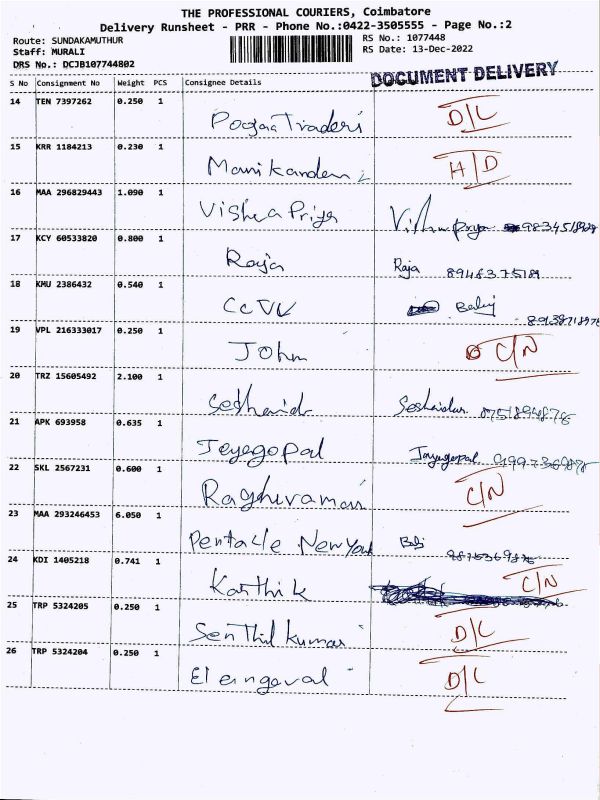 THE PROFESSIONAL COURIERS, Coimbatore
Delivery Runsheet - PRR - Phone No.:0422-3505555 - Page No.:2
Route: SUNDAKAMUTHUR RS No.: 1077448
Staff: MURALI RS Date: 13-Dec-2022
DRS No.: DCJB107744802
DOCUMENT DELIVERY
S No Consignment No Weight PCS Consignee Details
14 TEN 7397262 0.250 1
Pooja Traders D/L
15 KRR 1184213 0.230 1
Manikanden H/D
16 MAA 296829443 1.090 1
Vishva Priya
17 KCY 60533820 0.800 1
Raja Raja
18 KMU 2386432 0.540 1
CCTV
19 VPL 216333017 0.250 1
John C/N
20 TRZ 15605492 2.100 1
21 APK 693958 0.635 1
Jeyegopal Jayagopal
22 SKL 2567231 0.600 1
Raghuraman C/N
23 MAA 293246453 6.050 1
Pentacle New York
24 KDI 1405218 0.741 1
Karthik C/N
25 TRP 5324205 0.250 1
Senthil kumar D/L
26 TRP 5324204 0.250 1
D/L